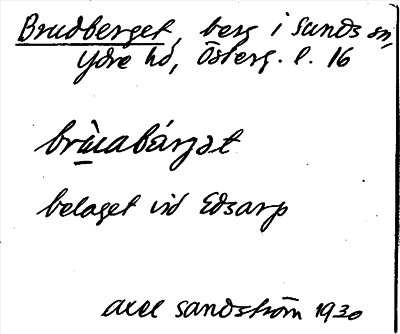 Brudberget, berg i Sunds sn,
Ydre hd, Österg. l. 16
brùabárjət
belaget vid Edsarp
Axel Sandström 1930